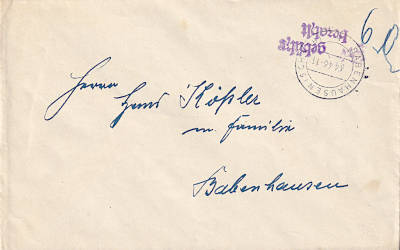 Gebühr
bezahlt
BABENHAUSEN (SC
Herrn
Hans Kößler
m. Familie
Babenhausen